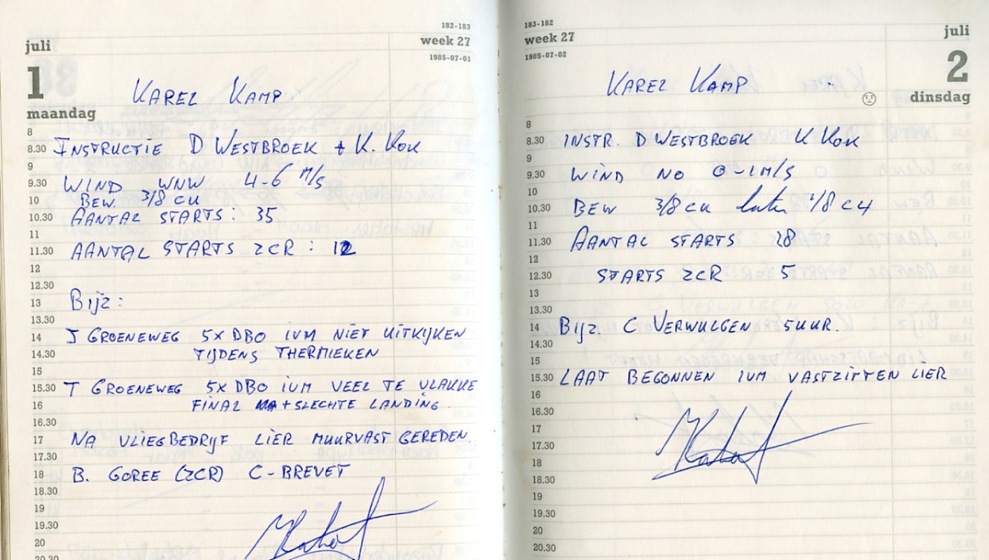 juli
182-183
week 27
1985-07-01
1
maandag
KAREL KAMP.
8
8.30 INSTRUCTIE D WESTBROEK + K. KOK
9
9.30 WIND WNW 4-6 M/S
10 BEW. 3/8 CU
10.30 AANTAL STARTS: 35
11
11.30 AANTAL STARTS ZCR : 12
12
12.30
13 Bijz:
13.30
14 J GROENEWEG 5x DBO IVM NIET UITKIJKEN
14.30 TIJDENS THERMIEKEN
15
15.30 T GROENEWEG 5x DBO IVM VEEL TE VLAKKE
16 FINAL + SLECHTE LANDING.
16.30
17 NA VLIEGBEDRIJF LIER MUURVAST GEREDEN.
17.30
18 B. GOREE (ZCR) C-BREVET
18.30
19
19.30
20
20.30
183-182
week 27
1985-07-02
juli
2
dinsdag
KAREL KAMP
8
8.30 INSTR. D WESTBROEK K KOK
9
9.30 WIND NO 0-1 M/S
10
10.30 BEW 3/8 CU later 1/8 CU
11
11.30 AANTAL STARTS 28
12
12.30 STARTS ZCR 5
13
13.30
14 Bijz. C VERWULGEN 5 UUR.
14.30
15
15.30 LAAT BEGONNEN IVM VASTZITTEN LIER
16
16.30
17
17.30
18
18.30
19
19.30
20
20.30